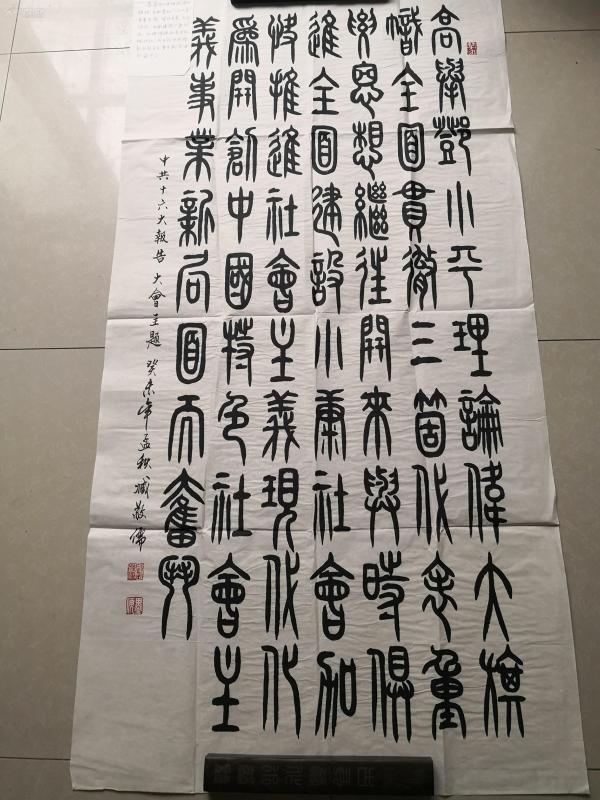 高舉鄧小平理論偉大旗
幟全面貫徹三箇代表重
要思想繼往開來與時俱
進全面建設小康社會加
快推進社會主義現代化
爲開創中國特色社會主
義事業新局面而奮鬥
中共十六大報告 大會主題 癸未年孟秋 臧敬儒